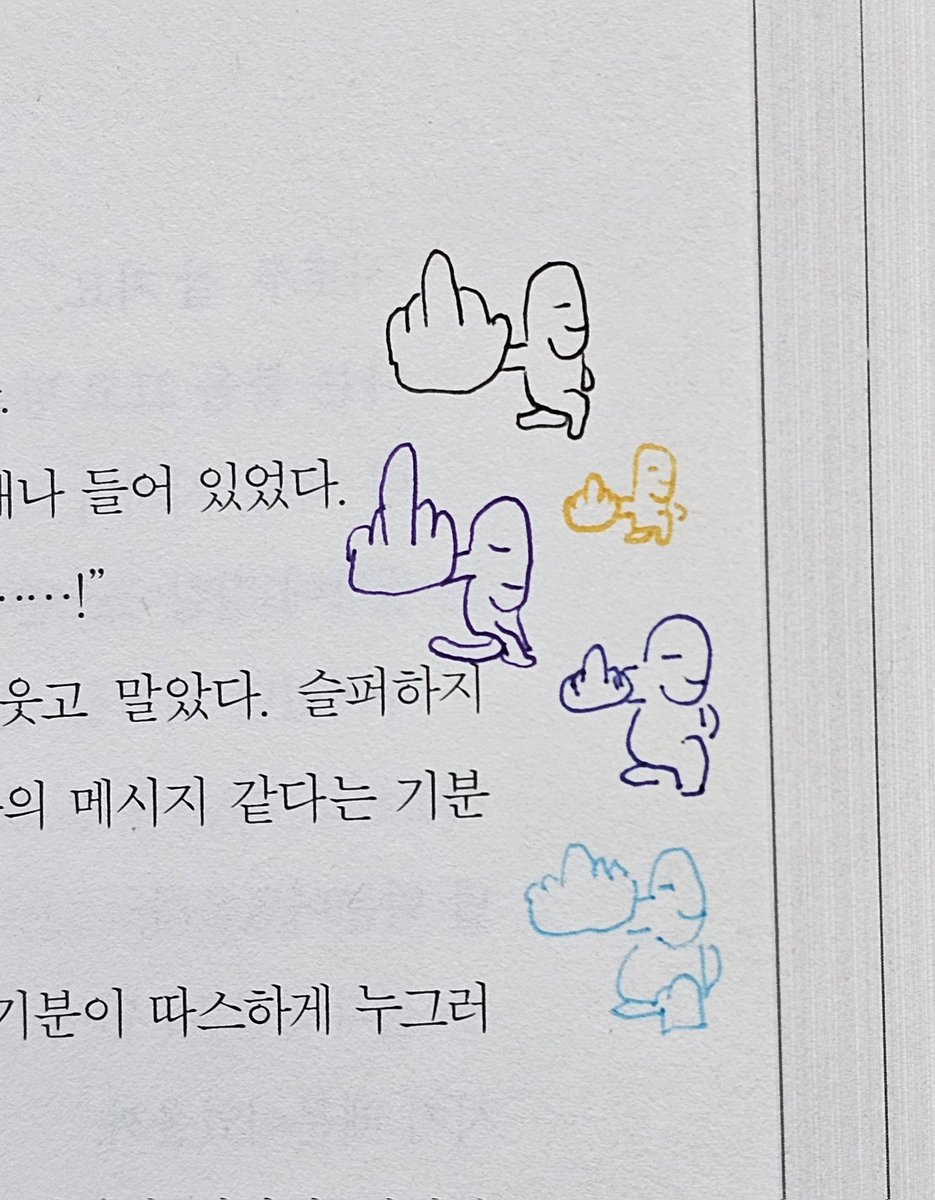 .
나 들어 있었다.
……!”
웃고 말았다. 슬퍼하지
의 메시지 같다는 기분
기분이 따스하게 누그러